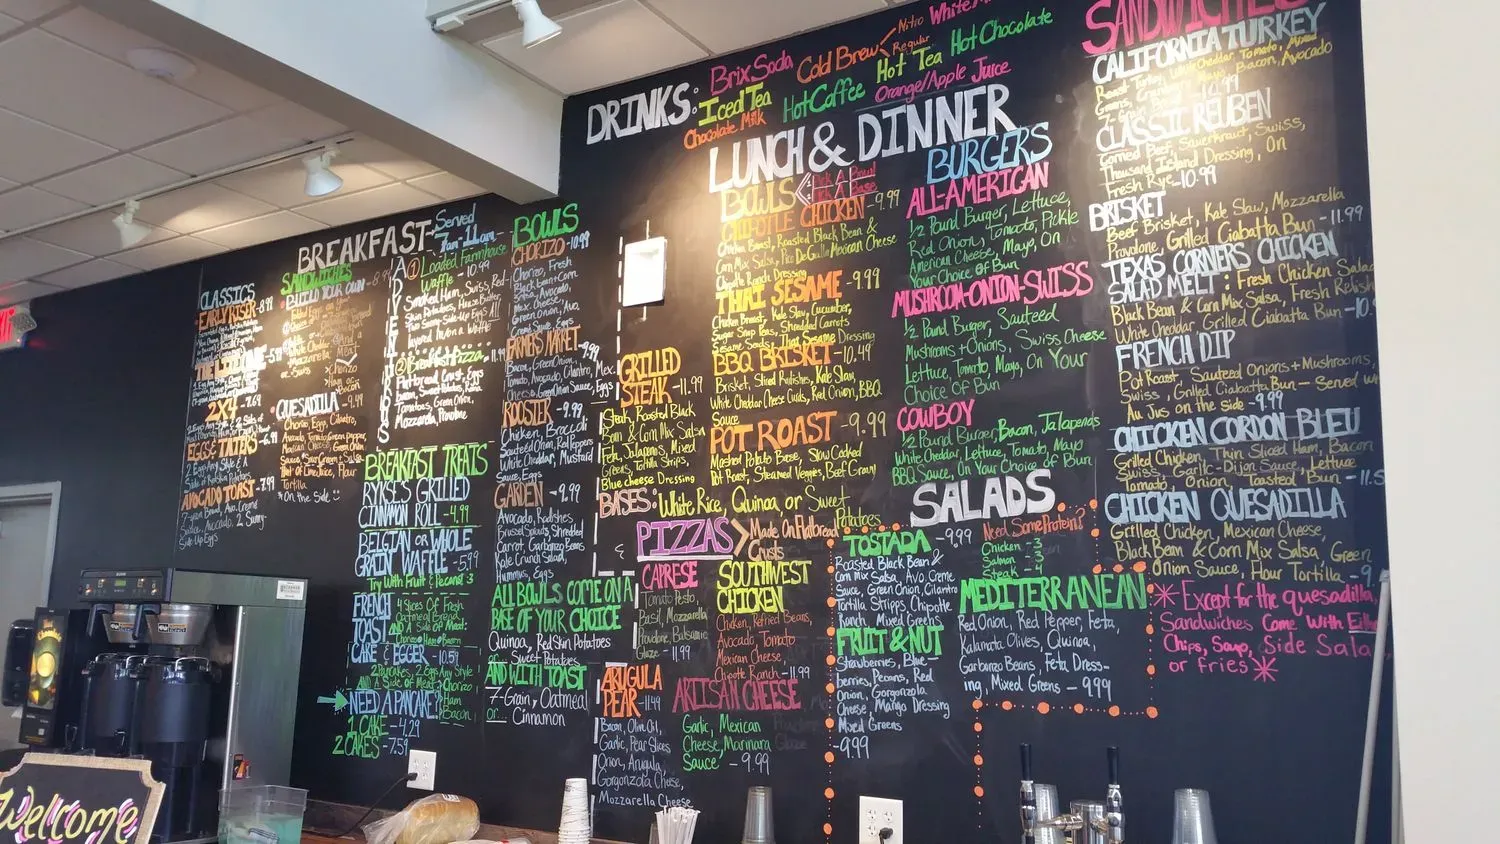 BREAKFAST - Served
7am-11am
CLASSICS
EARLY RISER - 8.99
2X4 - 7.69
EGGS & TATERS - 6.99
AVOCADO TOAST - 7.99
Side-Up Eggs
SANDWICHES
BUILD YOUR OWN
QUESADILLA - 9.49
Chorizo, Egg, Cilantro,
Avocado, Tomato, Green Pepper,
Tortilla
*On the side
ADVENTUROUS
① Loaded Farmhouse
Waffle - 10.99
Smoked Ham, Swiss, Red
Skin Potatoes,
Two Sunny-Side-Up Eggs All
layered in/on a Waffle
② Breakfast Pizza
Flatbread Crust, Eggs
Tomatoes, Green Onion,
Mozzarella, Provolone
BREAKFAST TREATS
RYKSE'S GRILLED
CINNAMON ROLL - 4.99
BELGIAN OR WHOLE
GRAIN WAFFLE - 5.99
Try With Fruit & Pecans! 3
FRENCH
TOAST
4 Slices Of Fresh
Oatmeal Bread
AND A Side of Meat:
Chorizo Ham Bacon
CAKE & EGGER - 10.59
2 Pancakes, 2 Eggs Any Style
AND A Side of Meat: Chorizo
Ham
Bacon
NEED A PANCAKE?
1 CAKE - 4.29
2 CAKES - 7.59
BOWLS
CHORIZO - 10.99
Chorizo, Fresh
Black Bean & Corn
Salsa, Avocado,
Mex. Cheese,
Green Onion, Avo.
Creme Sauce, Eggs
FARMERS MARKET - 9.99
Bacon, Green Onion,
Tomato, Avocado, Cilantro, Mex.
Cheese, Green Onion Sauce, Eggs
ROOSTER - 9.99
Chicken, Broccoli
Sauteed Onion, Red Peppers
White Cheddar, Mustard
Sauce, Eggs
GARDEN - 9.99
Avocado, Radishes
Brussel Sprouts, Shredded
Carrot, Garbanzo Beans
Kale Crunch Salad,
Hummus, Eggs
ALL BOWLS COME ON A
BASE OF YOUR CHOICE
Quinoa, Red Skin Potatoes
or Sweet Potatoes
AND WITH TOAST
7-Grain, Oatmeal
or Cinnamon
DRINKS:
Brix Soda
Cold Brew
Nitro
Regular
Iced Tea
Hot Coffee
Hot Tea
Hot Chocolate
Chocolate Milk
Orange/Apple Juice
LUNCH & DINNER
BOWLS
Pick A Bowl
& A Base
CHIPOTLE CHICKEN - 9.99
Chicken Breast, Roasted Black Bean &
Corn Mix Salsa, Pico De Gallo, Mexican Cheese
Chipotle Ranch Dressing
THAI SESAME - 9.99
Chicken Breast, Kale Slaw, Cucumber,
Sugar Snap Peas, Shredded Carrots
Sesame Seeds, Thai Sesame Dressing
BBQ BRISKET - 10.49
Brisket, Sliced Radishes, Kale Slaw,
White Cheddar Cheese Curds, Red Onion, BBQ
Sauce
POT ROAST - 9.99
Mashed Potato Base, Slow Cooked
Pot Roast, Steamed Veggies, Beef Gravy
GRILLED
STEAK - 11.99
Steak, Roasted Black
Bean & Corn Mix Salsa
Feta, Jalapenos, Mixed
Greens, Tortilla Strips
Blue Cheese Dressing
BASES: White Rice, Quinoa, or Sweet
Potatoes
PIZZAS
Made On Flatbread
Crusts
CAPRESE
Tomato Pesto,
Basil, Mozzarella,
Provolone, Balsamic
Glaze - 11.99
SOUTHWEST
CHICKEN
Chicken, Refried Beans,
Avocado, Tomato
Mexican Cheese,
Chipotle Ranch - 11.99
ARUGULA
PEAR - 11.49
Olive Oil,
Garlic, Pear Slices
Onion, Arugula,
Gorgonzola Cheese,
Mozzarella Cheese
ARTISAN CHEESE
Garlic, Mexican
Cheese, Marinara
Sauce - 9.99
BURGERS
ALL-AMERICAN
½ Pound Burger, Lettuce,
Red Onion, Tomato, Pickle
American Cheese, Mayo, On
Your Choice Of Bun
MUSHROOM-ONION-SWISS
½ Pound Burger, Sauteed
Mushrooms + Onions, Swiss Cheese
Lettuce, Tomato, Mayo, On Your
Choice Of Bun
COWBOY
½ Pound Burger, Bacon, Jalapenos
White Cheddar, Lettuce, Tomato, Mayo
BBQ Sauce, On Your Choice of Bun
SALADS
Need Some Protein?
Chicken - 3
Salmon - 3
Steak - 4
TOSTADA - 9.99
Roasted Black Bean &
Corn Mix Salsa, Avo. Creme
Sauce, Green Onion, Cilantro
Tortilla Stripps, Chipotle
Ranch, Mixed Greens
FRUIT & NUT
Strawberries, Blue-
berries, Pecans, Red
Onion, Gorgonzola
Cheese, Mango Dressing
Mixed Greens
- 9.99
MEDITERRANEAN
Red Onion, Red Pepper, Feta,
Kalamata Olives, Quinoa,
Garbanzo Beans, Feta Dress-
ing, Mixed Greens - 9.99
SANDWICHES
CALIFORNIA TURKEY
Roast Turkey, White Cheddar, Tomato, Mixed
Greens, Mayo, Bacon, Avocado
CLASSIC REUBEN
Corned Beef, Sauerkraut, Swiss,
Thousand Island Dressing, On
Fresh Rye - 10.99
BRISKET
Beef Brisket, Kale Slaw, Mozzarella
Provolone, Grilled Ciabatta Bun - 11.99
TEXAS CORNERS CHICKEN
SALAD MELT: Fresh Chicken Salad
Black Bean & Corn Mix Salsa, Fresh Relish
White Cheddar, Grilled Ciabatta Bun - 10.
FRENCH DIP
Pot Roast, Sauteed Onions + Mushrooms,
Swiss, Grilled Ciabatta Bun - Served w
Au Jus on the side - 9.99
CHICKEN CORDON BLEU
Grilled Chicken, Thin Sliced Ham, Bacon
Swiss, Garlic-Dijon Sauce, Lettuce
Tomato, Onion, Toasted Bun - 11.5
CHICKEN QUESADILLA
Grilled Chicken, Mexican Cheese,
Black Bean & Corn Mix Salsa, Green
Onion Sauce, Flour Tortilla - 9.
* Except for the quesadilla,
Sandwiches Come With Eith
Chips, Soup, Side Sala
or fries *
Welcome